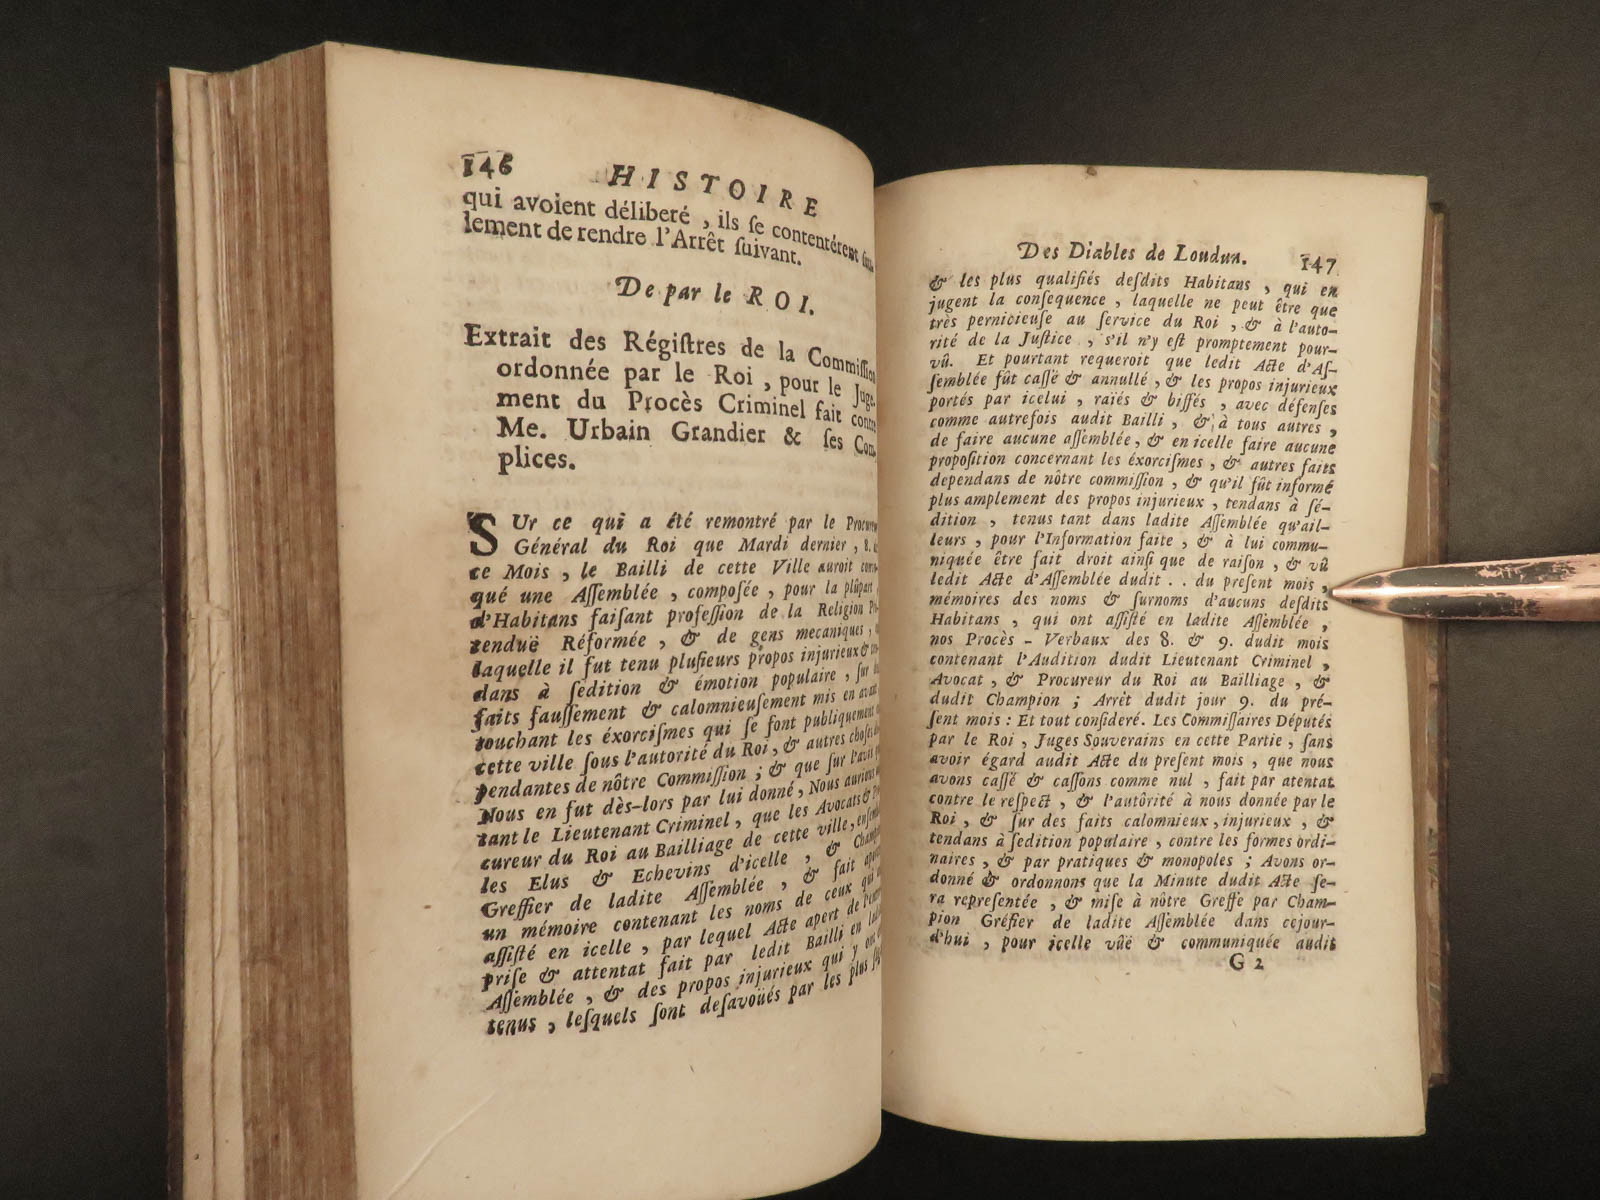 146 HISTOIRE
qui avoient déliberé, ils ſe contentérent
lement de rendre l'Arrêt ſuivant.
De par le ROI.
Extrait des Régiſtres de la Commiſſion
ordonnée par le Roi, pour le Juge-
ment du Procès Criminel fait contre
Me. Urbain Grandier & ſes Com-
plices.
SUr ce qui a été remontré par le Procureur
Général du Roi que Mardi dernier, 8.
ce Mois, le Bailli de cette Ville auroit
qué une Aſſemblée, compoſée, pour la plûpart
d'Habitans faiſant profeſſion de la Religion
tenduë Réformée, & de gens mecaniques,
laquelle il fut tenu pluſieurs propos injurieux &
dans à ſedition & émotion populaire, ſur
faits fauſſement & calomnieuſement mis en avant
touchant les éxorciſmes qui ſe font publiquement
cette ville ſous l'autorité du Roi, & autres choſes
pendantes de nôtre Commiſſion; & que ſur l'avis
Nous en fut dès-lors par lui donné, Nous aurions
tant le Lieutenant Criminel, que les Avocats &
cureur du Roi au Bailliage de cette ville,
les Elus & Echevins d'icelle, & Champion
Greffier de ladite Aſſemblée, & fait
un mémoire contenant les noms de ceux qui
aſſiſté en icelle, par lequel Acte apert de
priſe & attentat fait par ledit Bailli en
Aſſemblée, & des propos injurieux qui y
tenus, leſquels ſont deſavoüés par les plus
Des Diables de Loudun. 147
& les plus qualifiés deſdits Habitans, qui en
jugent la conſequence, laquelle ne peut être que
très pernicieuſe au ſervice du Roi, & à l'auto-
rité de la Juſtice, s'il n'y eſt promptement pour-
vû. Et pourtant requeroit que ledit Acte d'Aſ-
ſemblée fût caſſé & annullé, & les propos injurieux
portés par icelui, raïés & biffés, avec défenſes
comme autrefois audit Bailli, & à tous autres,
de faire aucune aſſemblée, & en icelle faire aucune
propoſition concernant les éxorciſmes, & autres faits
dependans de nôtre commiſſion, & qu'il fût informé
plus amplement des propos injurieux, tendans à ſé-
dition, tenus tant dans ladite Aſſemblée qu'ail-
leurs, pour l'Information faite, & à lui commu-
niquée être fait droit ainſi que de raiſon, & vû
ledit Acte d'Aſſemblée dudit . . du preſent mois,
mémoires des noms & ſurnoms d'aucuns deſdits
Habitans, qui ont aſſiſté en ladite Aſſemblée,
nos Procès-Verbaux des 8. & 9. dudit mois
contenant l'Audition dudit Lieutenant Criminel,
Avocat, & Procureur du Roi au Bailliage, &
dudit Champion; Arrêt dudit jour 9. du pré-
ſent mois: Et tout conſideré. Les Commiſſaires Députés
par le Roi, Juges Souverains en cette Partie, ſans
avoir égard audit Acte du preſent mois, que nous
avons caſſé & caſſons comme nul, fait par atentat
contre le reſpect, & l'autôrité à nous donnée par le
Roi, & ſur des faits calomnieux, injurieux, &
tendans à ſedition populaire, contre les formes ordi-
naires, & par pratiques & monopoles; Avons or-
donné & ordonnons que la Minute dudit Acte ſe-
ra repreſentée, & miſe à nôtre Greffe par Cham-
pion Gréfier de ladite Aſſemblée dans cejour-
d'hui, pour icelle vûë & communiquée audit
G 2